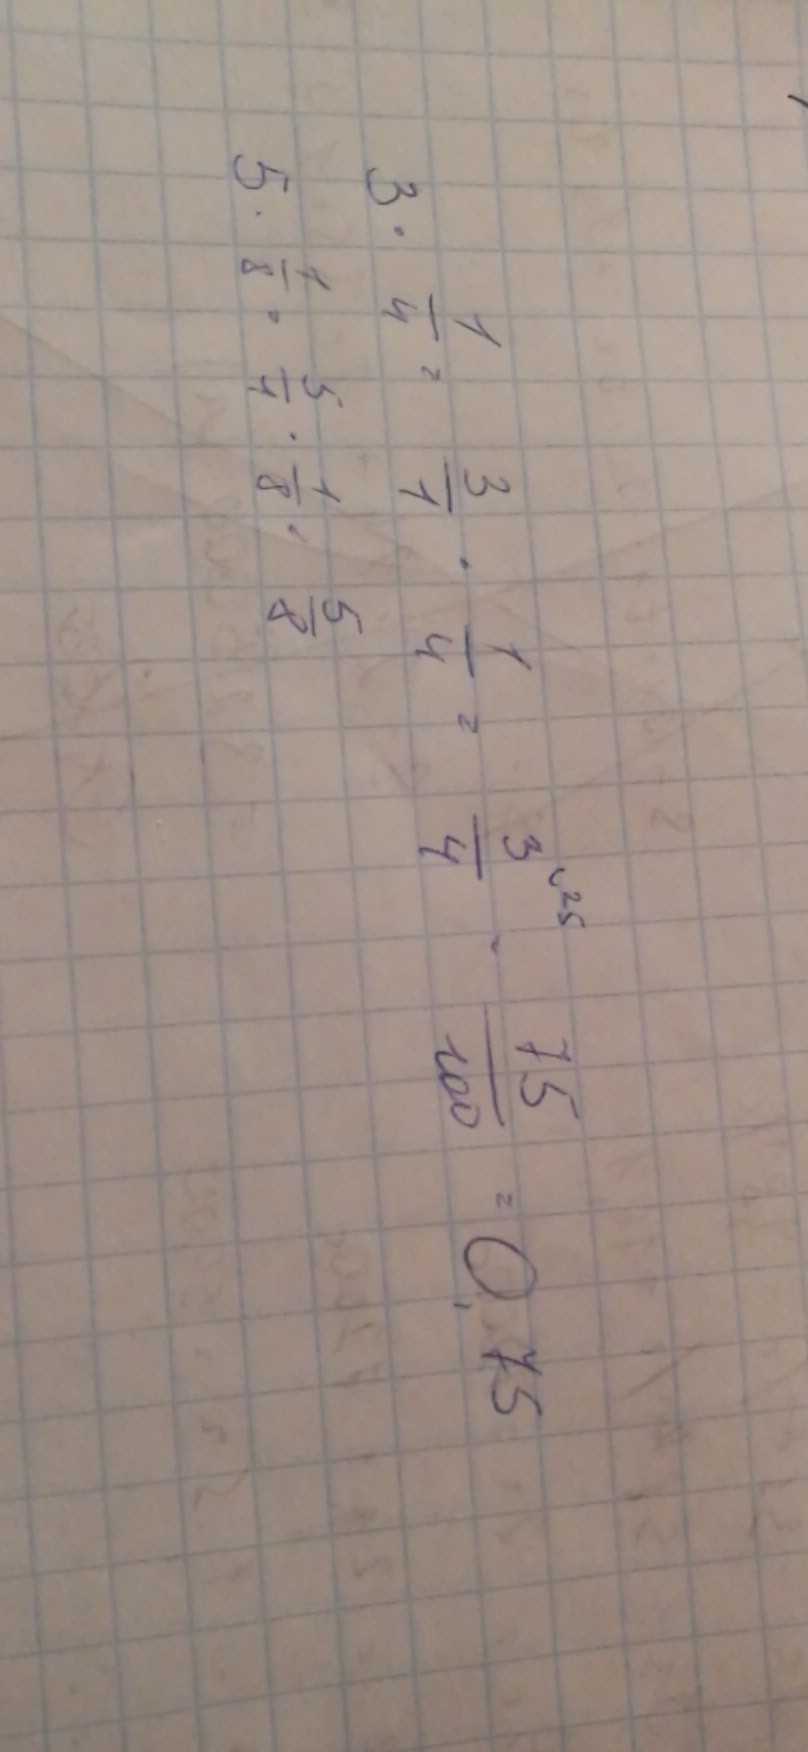 3 · 1/4 = 3/1 · 1/4 = 3/4 \25 = 75/100 = 0,75
5 · 1/8 = 5/1 · 1/8 = 5/8